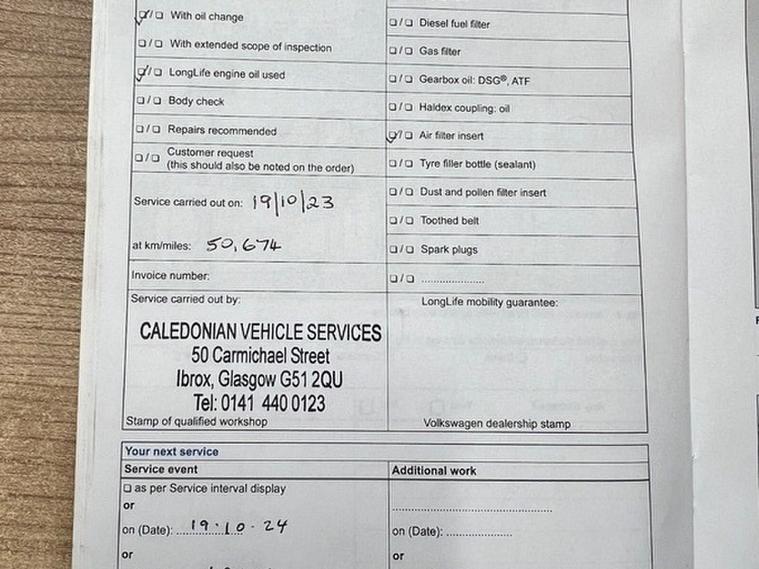 ☑/☐ With oil change
☐/☐ With extended scope of inspection
☑/☐ LongLife engine oil used
☐/☐ Body check
☐/☐ Repairs recommended
☐/☐ Customer request
(this should also be noted on the order)
Service carried out on: 19/10/23
at km/miles: 50,674
Invoice number:
Service carried out by:
CALEDONIAN VEHICLE SERVICES
50 Carmichael Street
Ibrox, Glasgow G51 2QU
Tel: 0141 440 0123
Stamp of qualified workshop
☐/☐ Diesel fuel filter
☐/☐ Gas filter
☐/☐ Gearbox oil: DSG®, ATF
☐/☐ Haldex coupling: oil
☑/☐ Air filter insert
☐/☐ Tyre filler bottle (sealant)
☐/☐ Dust and pollen filter insert
☐/☐ Toothed belt
☐/☐ Spark plugs
☐/☐ ....................
LongLife mobility guarantee:
Volkswagen dealership stamp
Your next service
Service event
☐ as per Service interval display
or
on (Date): 19.10.24
or
Additional work
on (Date): ....................
or